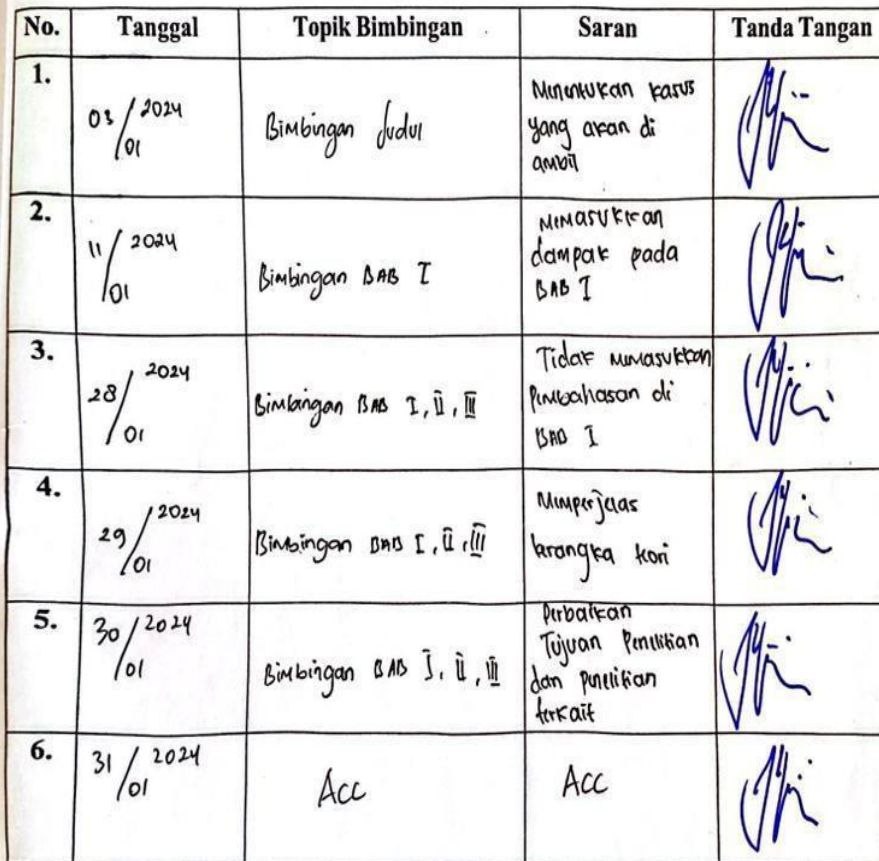 No. Tanggal Topik Bimbingan Saran Tanda Tangan
1.
03/01 2024
Bimbingan Judul
Menentukan kasus
yang akan di
ambil
2.
11/01 2024
Bimbingan BAB I
Memasukkan
dampak pada
BAB I
3.
28/01 2024
Bimbingan BAB I, II, III
Tidak memasukkan
Pembahasan di
BAB I
4.
29/01 2024
Bimbingan BAB I, II, III
Memperjelas
kerangka teori
5.
30/01 2024
Bimbingan BAB I, II, III
Perbaikan
Tujuan Penelitian
dan penelitian
terkait
6.
31/01 2024
Acc
Acc